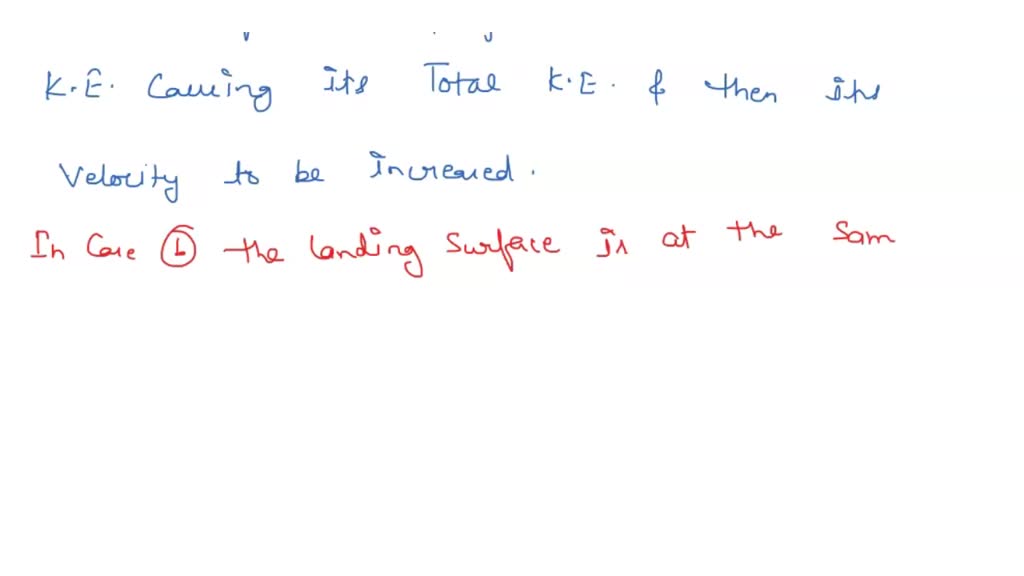 K.E. Causing its Total K.E. & then its
Velocity to be increased.
In Case ⓑ the landing surface is at the Sam